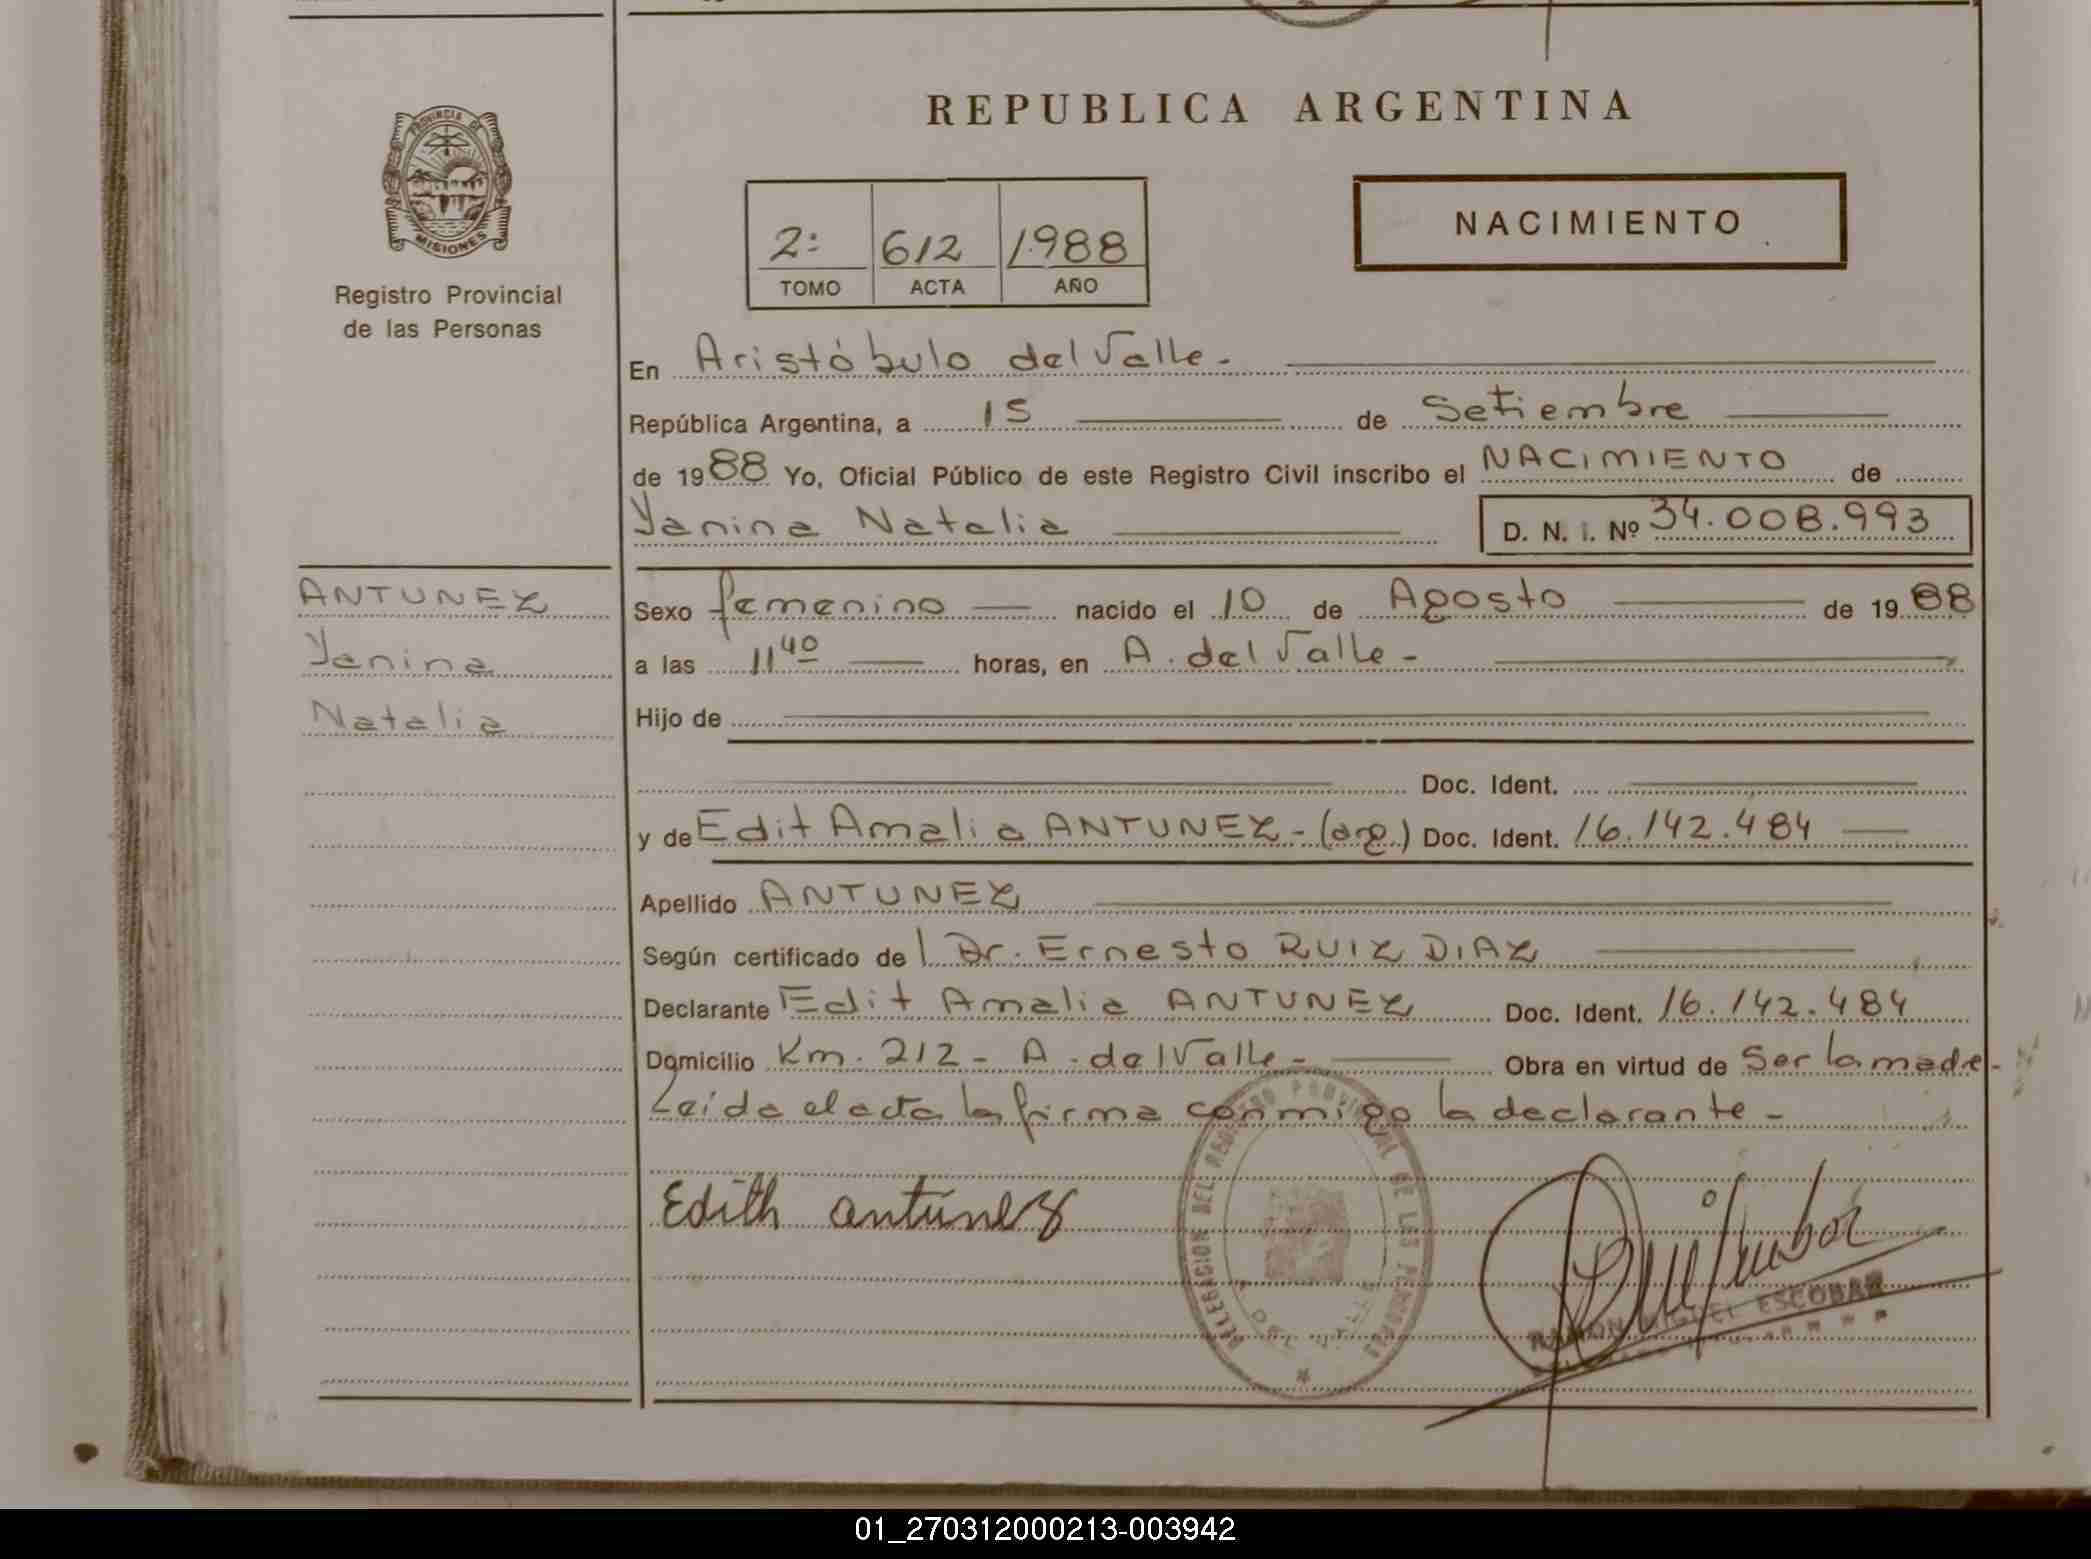 REPUBLICA ARGENTINA
PROVINCIA DE
MISIONES
Registro Provincial
de las Personas
NACIMIENTO
2: 612 1988
TOMO ACTA AÑO
En Aristóbulo del Valle.-
República Argentina, a 15 de Setiembre
de 1988 Yo, Oficial Público de este Registro Civil inscribo el NACIMIENTO de
Yanina Natalia D. N. I. Nº 34.008.993
ANTUNEZ
Yanina
Natalia
Sexo femenino nacido el 10 de Agosto de 1988
a las 11 40 horas, en A. del Valle-
Hijo de
Doc. Ident.
y de Edit Amalia ANTUNEZ-(arg.) Doc. Ident. 16.142.484
Apellido ANTUNEZ
Según certificado de l Dr. Ernesto RUIZ DIAZ
Declarante Edit Amalia ANTUNEZ Doc. Ident. 16.142.484
Domicilio Km. 212- A. del Valle- Obra en virtud de Ser la madre-
Leída el acta la firma conmigo la declarante-
Edith antúnez
DELEGACION DEL REGISTRO PROVINCIAL DE LAS PERSONAS
A. DEL VALLE
RAMON MIGUEL ESCOBAR
01_270312000213-003942